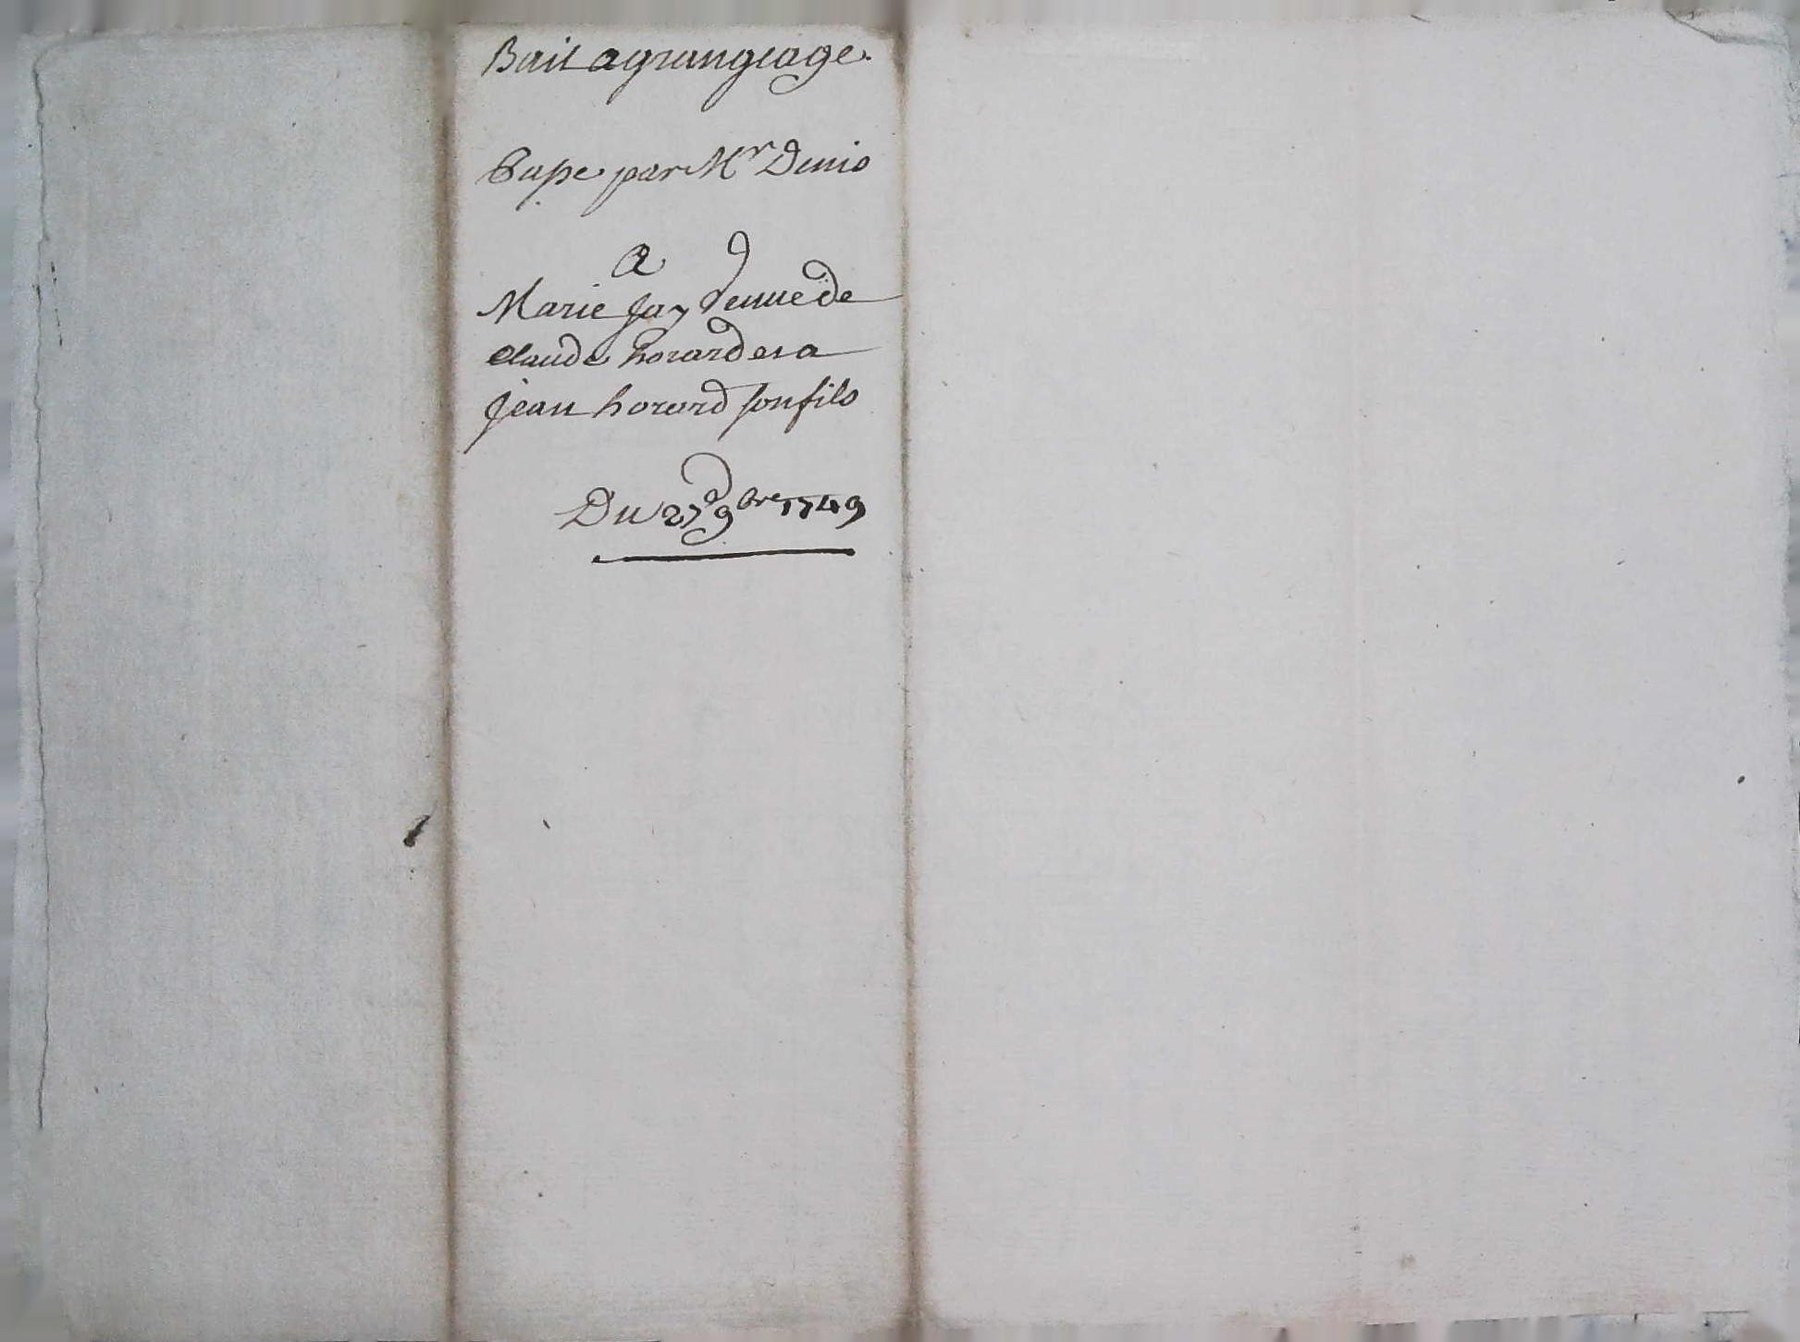 Bail a grangeage
passe par Mr Denis
A
Marie Jay veuve de
claude horard et a
jean horard son fils
Du 27e 9bre 1749